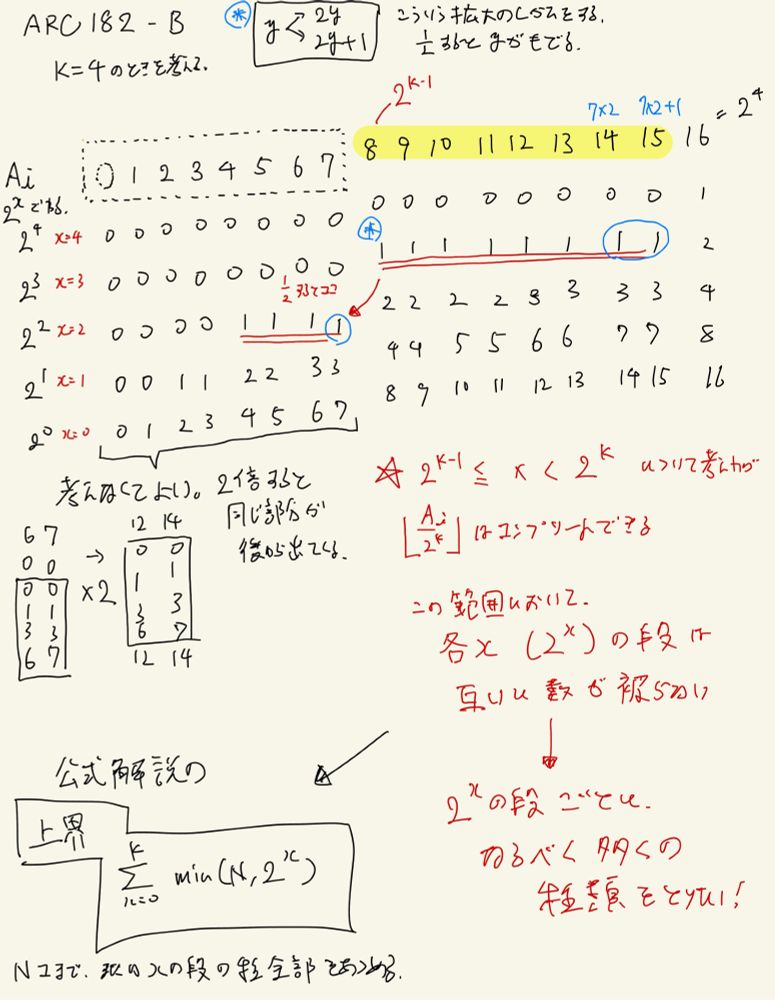 ARC 182 - B
K=4のときを考える.
* y < 2y 2y+1
こういう拡大のしかたをする.
1/2すると yがもどる.
2^{K-1}
7×2 7×2+1
Ai 0 1 2 3 4 5 6 7 8 9 10 11 12 13 14 15 16 = 2^4
2^xでわる.
2^4 x=4 0 0 0 0 0 0 0 0 0 0 0 0 0 0 0 0 1
*
2^3 x=3 0 0 0 0 0 0 0 0 1 1 1 1 1 1 1 1 2
1/2 するとココ
2^2 x=2 0 0 0 0 1 1 1 1 2 2 2 2 3 3 3 3 4
2^1 x=1 0 0 1 1 2 2 3 3 4 4 5 5 6 6 7 7 8
2^0 x=0 0 1 2 3 4 5 6 7 8 9 10 11 12 13 14 15 16
考えなくてよい。2倍すると
同じ部分が
後から出てくる.
6 7
0 0
0 0
1 1
3 3
6 7
→
×2
12 14
0 0
1 1
3 3
6 7
12 14
☆ 2^{K-1} ≦ x < 2^K について考えれば
⌊Ai/2^k⌋ はコンプリートできる
この範囲において.
各x (2^x) の段は
互いに数が被らない
↓
2^xの段ごとに.
なるべく多くの
種類をとりたい!
公式解説の
上界
K
Σ min(N, 2^x)
x=0
Nコまで.